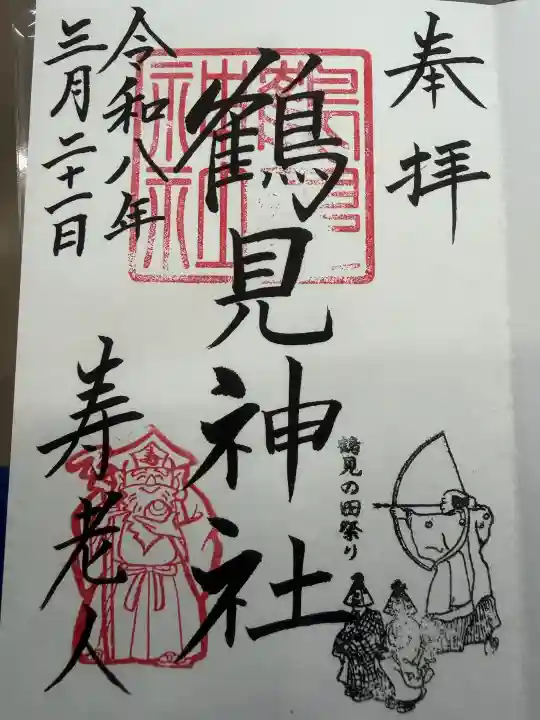 奉拝
鶴見神社
鶴見の田祭り
令和八年
三月二十一日
寿老人
寿